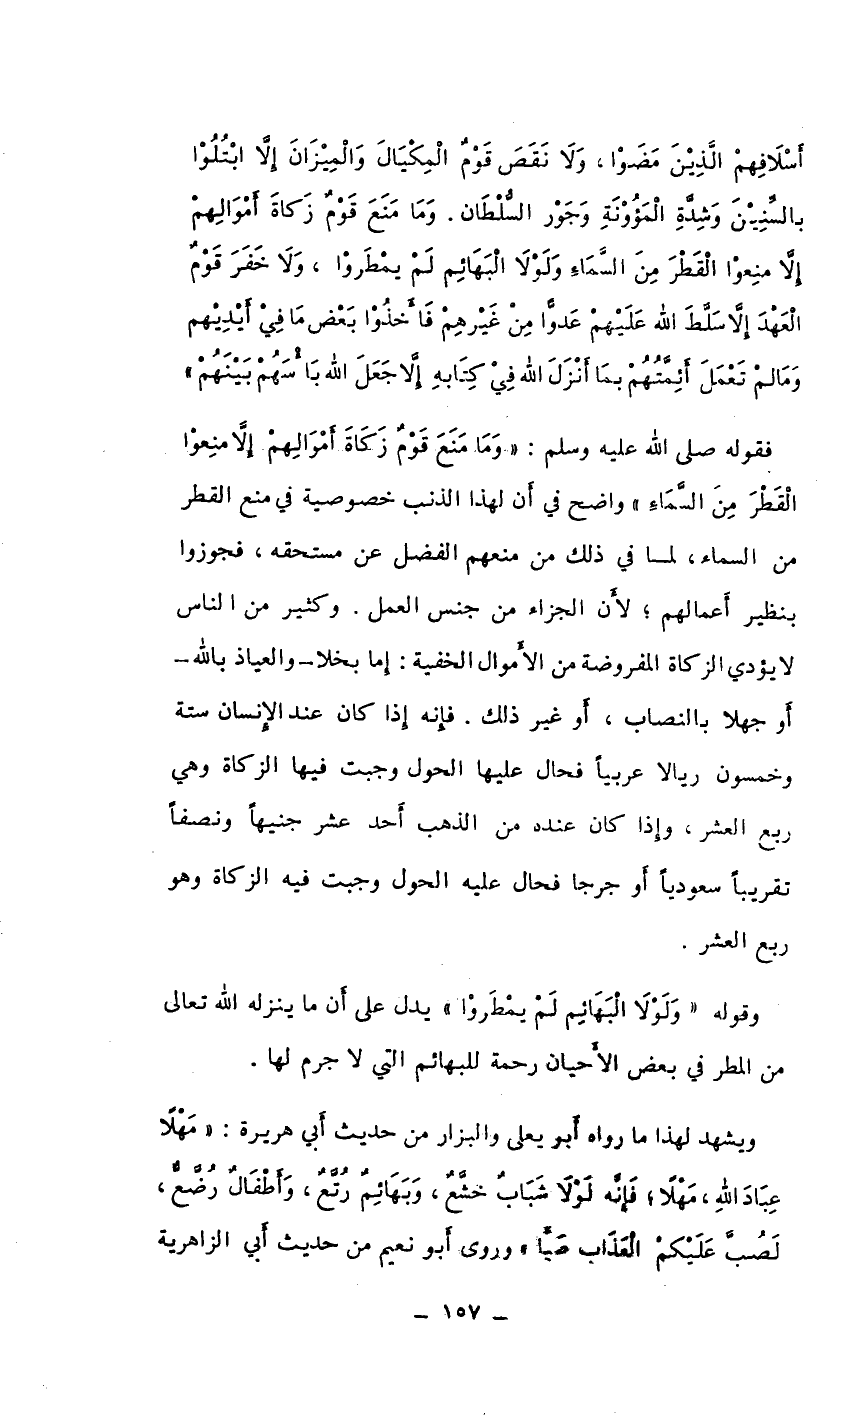 أَسْلَافِهِمْ الَّذِيْنَ مَضَوْا ، وَلَا نَقَصَ قَوْمٌ الْمِكْيَالَ وَالْمِيْزَانَ إِلَّا ابْتُلُوْا
بالسِّنِيْنَ وَشِدَّةِ الْمَؤُوْنَةِ وَجَوْر السُّلْطَان . وَمَا مَنَعَ قَوْمٌ زَكاةَ أَمْوَالِهِمْ
إلَّا منِعوْا الْقَطْرَ مِنَ السَّمَاءِ وَلَوْلَا الْبَهَائِم لَمْ يمْطَروْا ، وَلَا خَفَرَ قَوْمٌ
الْعَهْدَ إلَّا سَلَّطَ الله عَلَيْهِمْ عَدوًّا مِنْ غَيْرهِمْ فَأخذُوْا بَعْض مَا فِيْ أَيْدِيْهِم
وَمَالمْ تَعْمَلَ أَئِمَّتُهُمْ بمَا أَنْزَلَ الله فِيْ كِتَابهِ إلَّا جَعَلَ الله بَأْسَهُمْ بَيْنَهُمْ »
فقوله صلى الله عليه وسلم : « وَمَا مَنَعَ قَوْمٌ زَكَاةَ أَمْوَالِهِمْ إِلَّا منِعوْا
الْقَطْرَ مِنَ السَّمَاءِ » واضح في أن لهذا الذنب خصوصية في منع القطر
من السماء ، لمـا في ذلك من منعهم الفضل عن مستحقه ، فجوزوا
بنظير أعمالهم ؛ لأن الجزاء من جنس العمل . وكثير من الناس
لا يؤدي الزكاة المفروضة من الأموال الخفية : إما بخلا ـ والعياذ بالله ـ
أو جهلا بالنصاب ، أو غير ذلك . فإنه إذا كان عند الإنسان ستة
وخمسون ريالا عربياً فحال عليها الحول وجبت فيها الزكاة وهي
ربع العشر ، وإذا كان عنده من الذهب أحد عشر جنيهاً ونصفاً
تقريباً سعودياً أو جرجا فحال عليه الحول وجبت فيه الزكاة وهو
ربع العشر .
وقوله « وَلَوْلَا الْبَهَائِم لَمْ يمْطَروْا » يدل على أن ما ينزله الله تعالى
من المطر في بعض الأحيان رحمة للبهائم التي لا جرم لها .
ويشهد لهذا ما رواه أبو يعلى والبزار من حديث أبي هريرة : « مَهْلًا
عِبَادَ اللهِ ، مَهْلًا ؛ فَإِنَّه لَوْلَا شَبَابٌ خشَّعٌ ، وَبَهَائِمٌ رُتَّعٌ ، وَأَطْفَالٌ رُضَّعٌ ،
لَصُبَّ عَلَيْكمْ الْعَذَاب صَبًّا » وروى أبو نعيم من حديث أبي الزاهرية
ـ ١٥٧ ـ